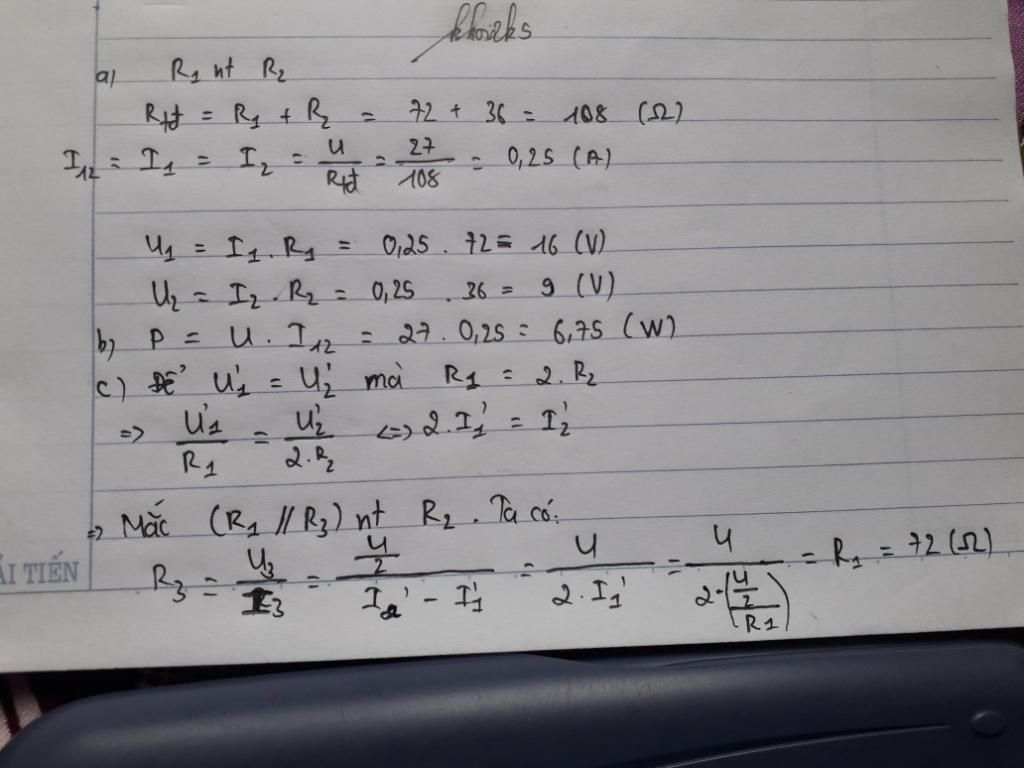 khoi2ks
a) R₁ nt R₂
Rtđ = R₁ + R₂ = 72 + 36 = 108 (Ω)
I₁₂ = I₁ = I₂ = U/Rtđ = 27/108 = 0,25 (A)
U₁ = I₁ . R₁ = 0,25 . 72 = 16 (V)
U₂ = I₂ . R₂ = 0,25 . 36 = 9 (V)
b) P = U . I₁₂ = 27 . 0,25 = 6,75 (W)
c) Để U₁' = U₂' mà R₁ = 2. R₂
=> U₁'/R₁ = U₂'/2.R₂ <=> 2.I₁' = I₂'
=> Mắc (R₁ // R₃) nt R₂. Ta có:
ẢI TIẾN
R₃ = U₃/I₃ = (U/2)/(I₂' - I₁') = U/(2.I₁') = U/(2.((U/2)/R₁)) = R₁ = 72 (Ω)